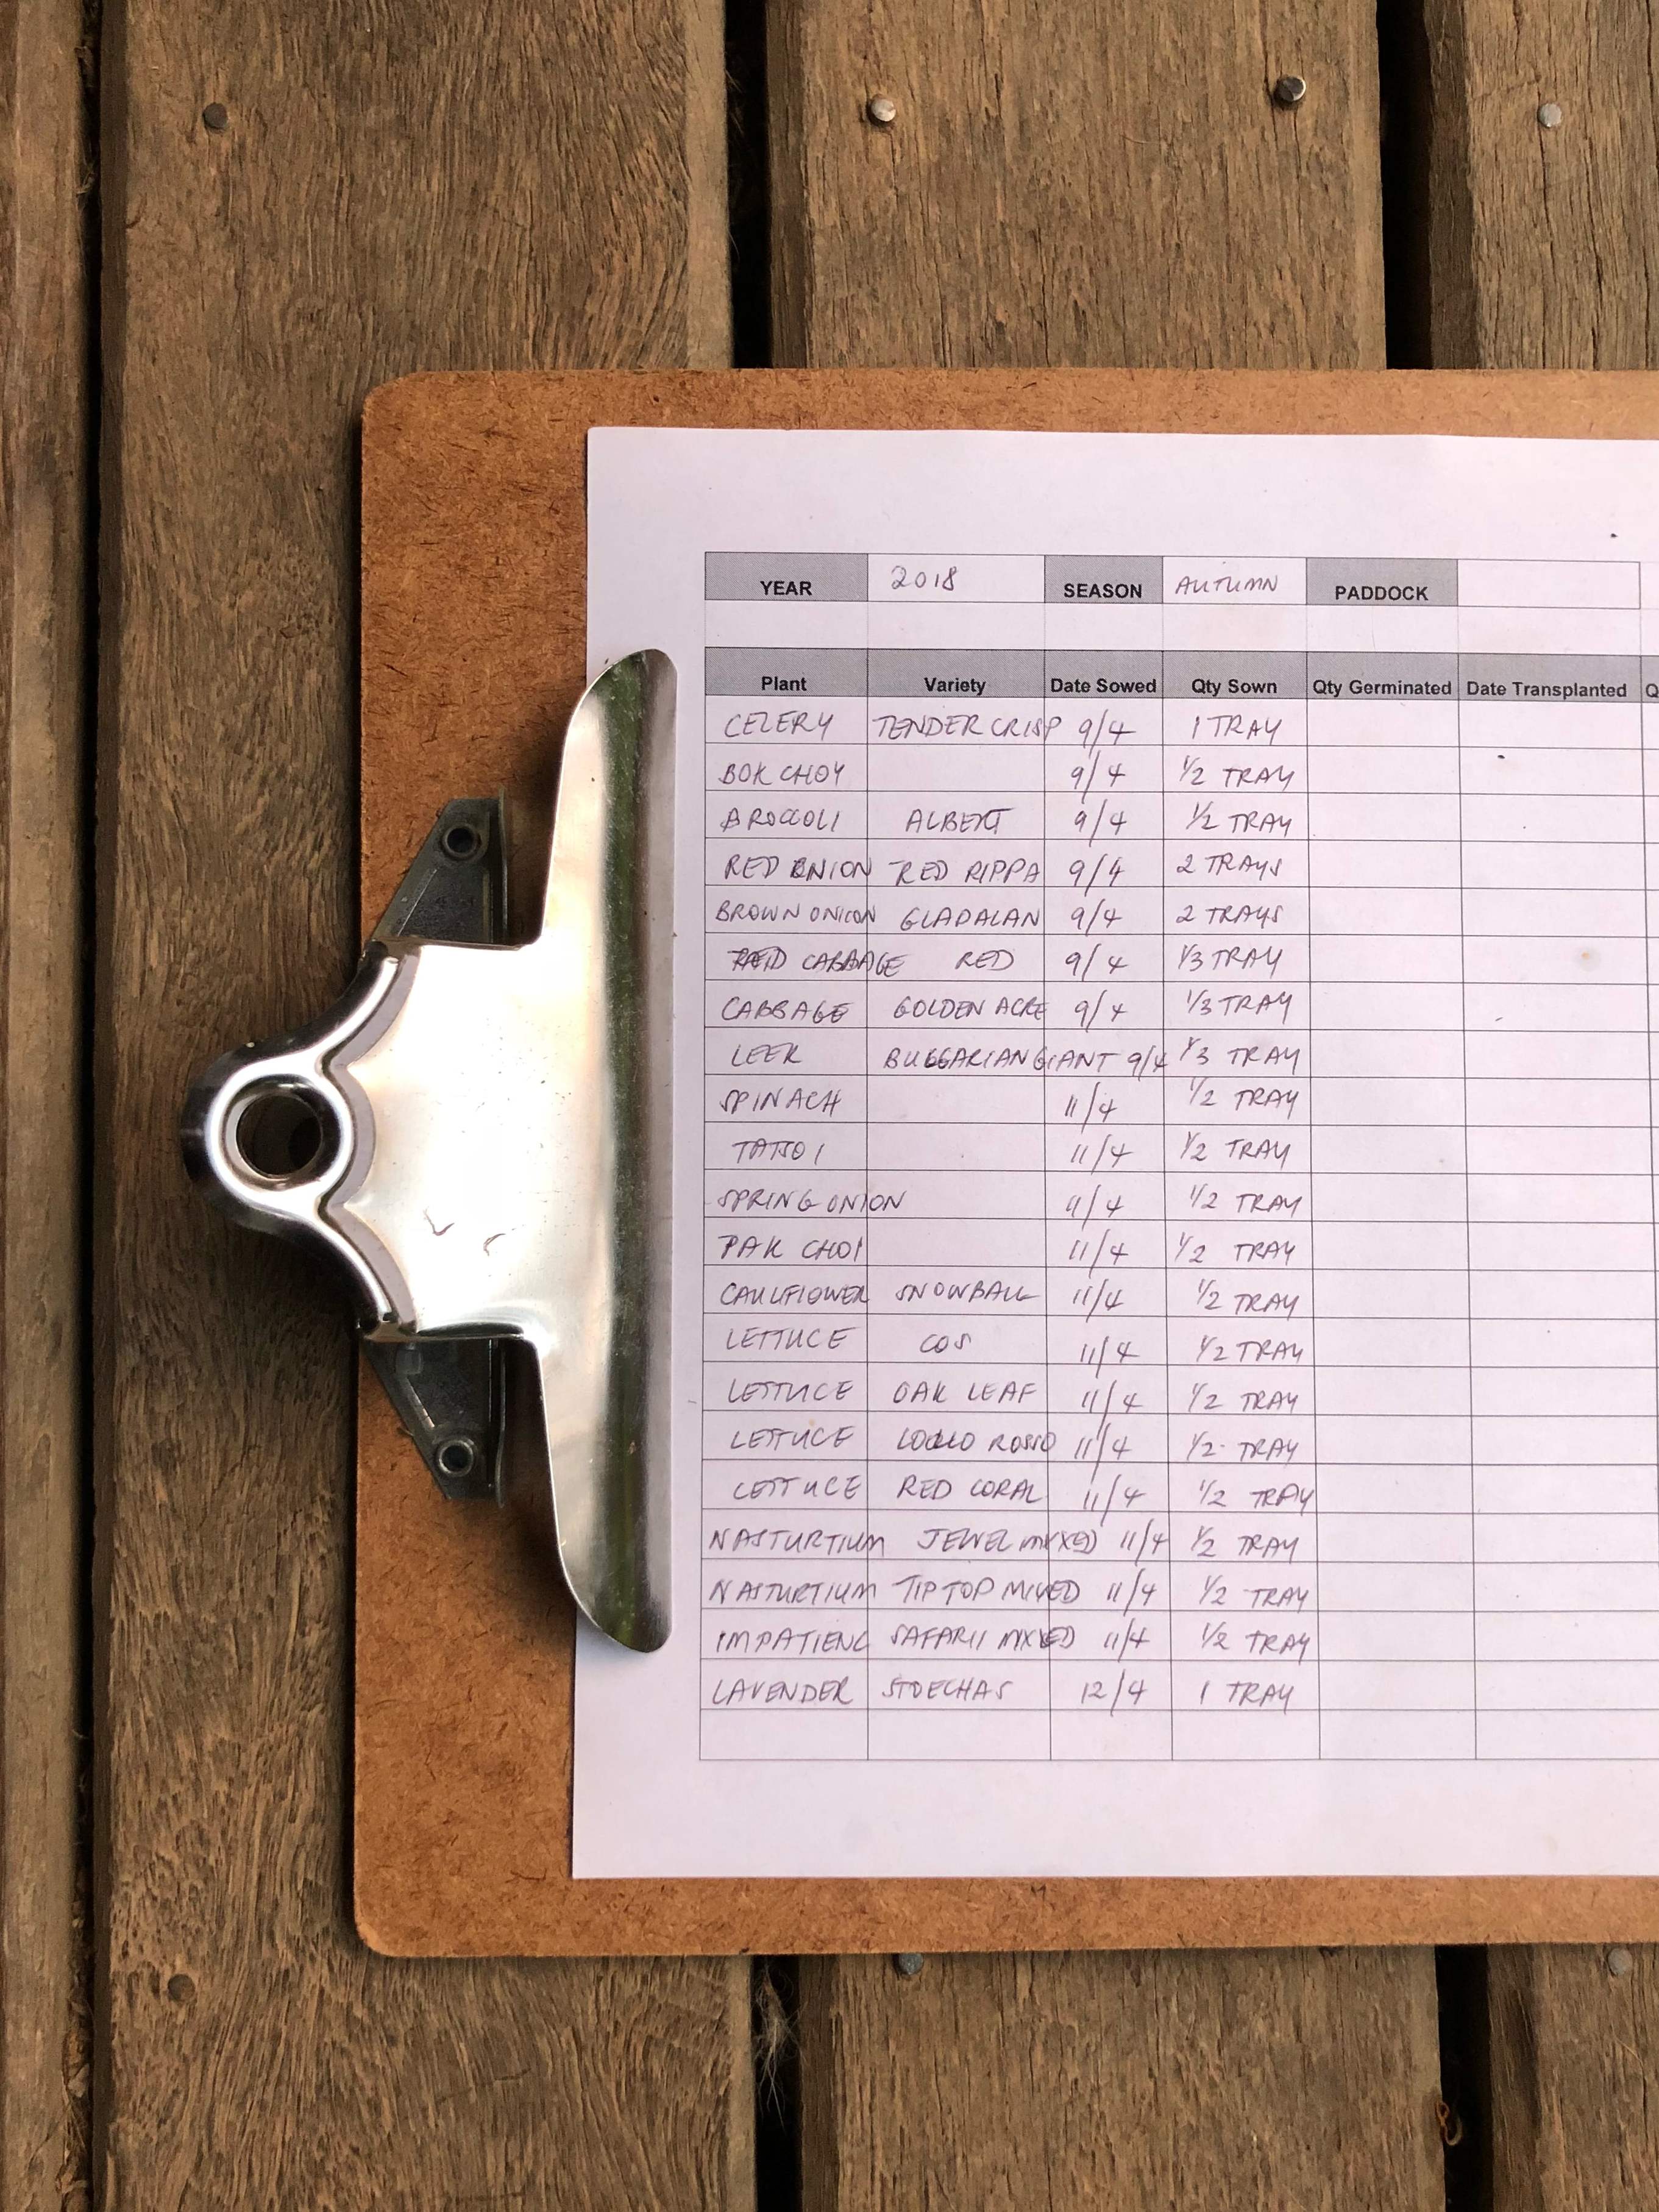 YEAR 2018 SEASON AUTUMN PADDOCK
Plant Variety Date Sowed Qty Sown Qty Germinated Date Transplanted Q
CELERY TENDER CRISP 9/4 1 TRAY
BOK CHOY 9/4 1/2 TRAY
BROCCOLI ALBERT 9/4 1/2 TRAY
RED ONION RED RIPPA 9/4 2 TRAYS
BROWN ONION GLADALAN 9/4 2 TRAYS
RED CABBAGE RED 9/4 1/3 TRAY
CABBAGE GOLDEN ACRE 9/4 1/3 TRAY
LEEK BULGARIAN GIANT 9/4 1/3 TRAY
SPINACH 11/4 1/2 TRAY
TATSOI 11/4 1/2 TRAY
SPRING ONION 11/4 1/2 TRAY
PAK CHOI 11/4 1/2 TRAY
CAULIFLOWER SNOWBALL 11/4 1/2 TRAY
LETTUCE COS 11/4 1/2 TRAY
LETTUCE OAK LEAF 11/4 1/2 TRAY
LETTUCE LOLLO ROSSO 11/4 1/2 TRAY
LETTUCE RED CORAL 11/4 1/2 TRAY
NASTURTIUM JEWEL MIXED 11/4 1/2 TRAY
NASTURTIUM TIP TOP MIXED 11/4 1/2 TRAY
IMPATIENC SAFARII MIXED 11/4 1/2 TRAY
LAVENDER STOECHAS 12/4 1 TRAY